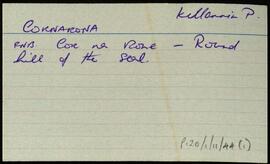 Killannin P.
CORNARONA
RNB Cor na Rone - Round
hill of the seal.
P120/1/11/44 (1)